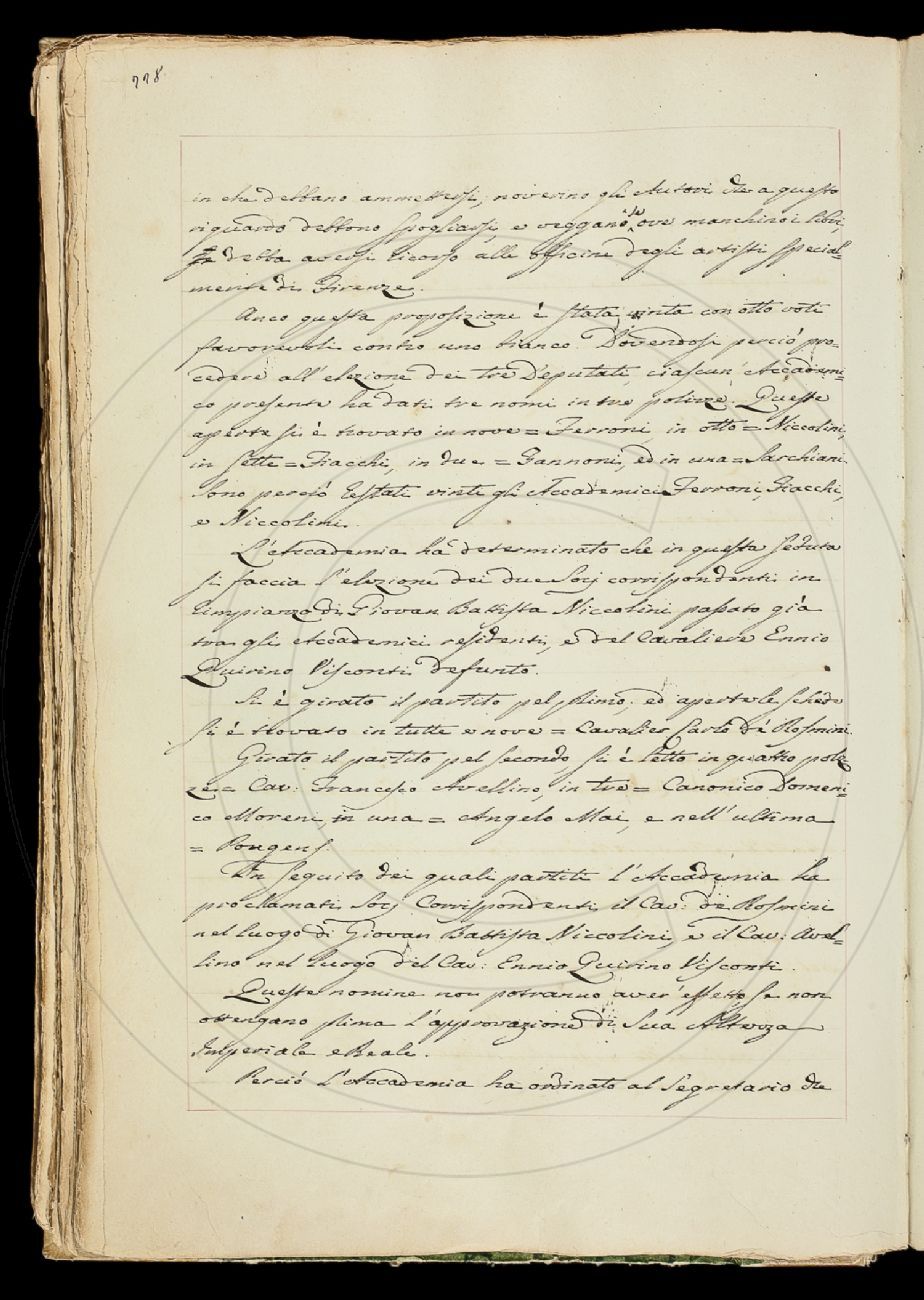 228
in che debbano ammettersi; noverino gli Autori che a questo
riguardo debbono spogliarsi, e veggano se, ove manchino i libri,
debba aversi ricorso alle officine degli artisti special=
mente di Firenze.
Anco questa proposizione è stata vinta con otto voti
favorevoli contro uno bianco. Dovendosi perciò pro=
cedere all'elezione dei tre Deputati, ciascun Accademi=
co presente ha dati tre nomi in tre polizze. Queste
aperte si è trovato in nove = Ferroni, in otto = Niccolini,
in sette = Fiacchi, in due = Zannoni, ed in una = Sarchiani.
Sono perciò restati vinti gli Accademici Ferroni, Fiacchi,
e Niccolini.
L'Accademia ha determinato che in questa seduta
si faccia l'elezione dei due Socj corrispondenti in
rimpiazzo di Giovan Battista Niccolini passato già
tra gli Accademici residenti, e del Cavaliere Ennio
Quirino Visconti defunto.
Si è girato il partito pel primo, ed aperte le schede
si è trovato in tutte e nove = Cavalier Carlo de' Rosmini.
Girato il partito pel secondo, si è letto in quattro poliz
ze = Cav: Francesco Avellino, in tre = Canonico Domeni=
co Moreni, in una = Angelo Mai, e nell'ultima
= Pougens.
In seguito dei quali partiti l'Accademia ha
proclamati Socj Corrispondenti il Cav: de' Rosmini
nel luogo di Giovan Battista Niccolini, e il Cav: Avel=
lino nel luogo del Cav: Ennio Quirino Visconti.
Queste nomine non potranno aver effetto se non
ottengano prima l'approvazione di Sua Altezza
Imperiale e Reale.
Perciò l'Accademia ha ordinato al Segretario che